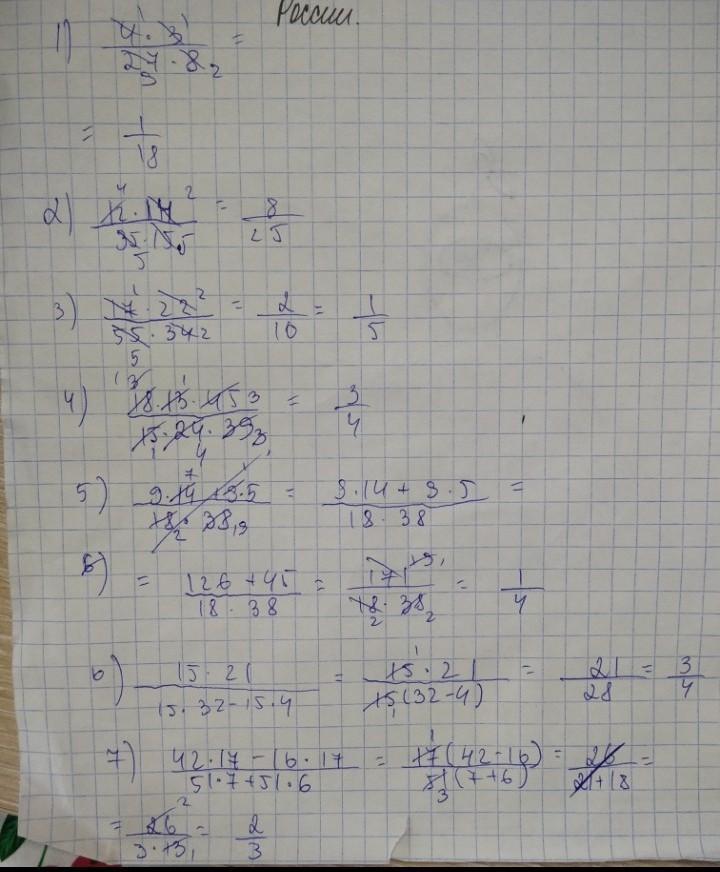 России.
1) 4·3/27·8 =
= 1/18
2) 12·14/35·15 = 8/25
3) 17·22/55·34 = 2/10 = 1/5
4) 18·13·45/15·24·39 = 3/4
5) 9·14+9·5/18·38 = 9·14+9·5/18·38 =
= 126+45/18·38 = 171/18·38 = 1/4
6) 15·21/15·32-15·4 = 15·21/15(32-4) = 21/28 = 3/4
7) 42·17-16·17/51·7+51·6 = 17(42-16)/51(7+6) = 26/21+18 =
= 26/3·13 = 2/3